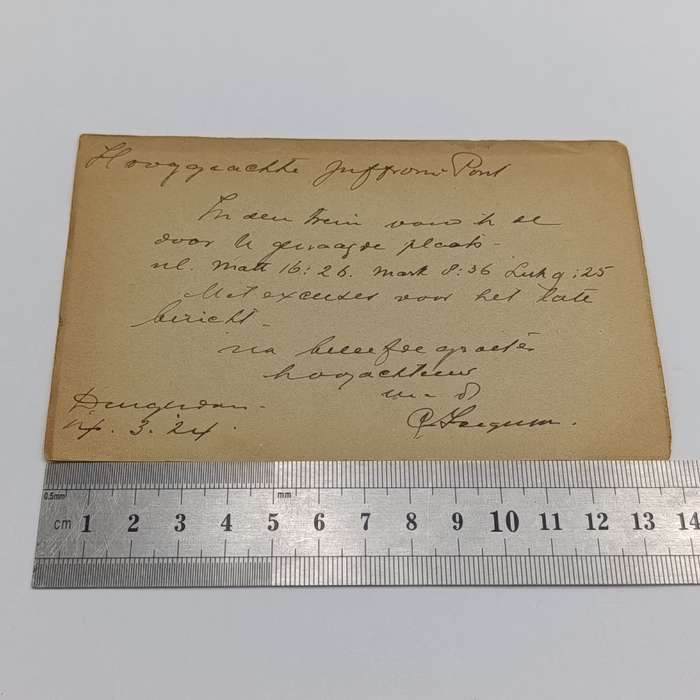 Hooggeachte Juffrouw Pont
In den trein vond ik de
door U gevraagde plaats -
nl. Matt 16:26. Mark 8:36 Luk 9:25
Met excuses voor het late
bericht -
na beleefde groeten
hoogachtend
14. 3. 24.
0.5mm mm
cm 1 2 3 4 5 6 7 8 9 10 11 12 13 14